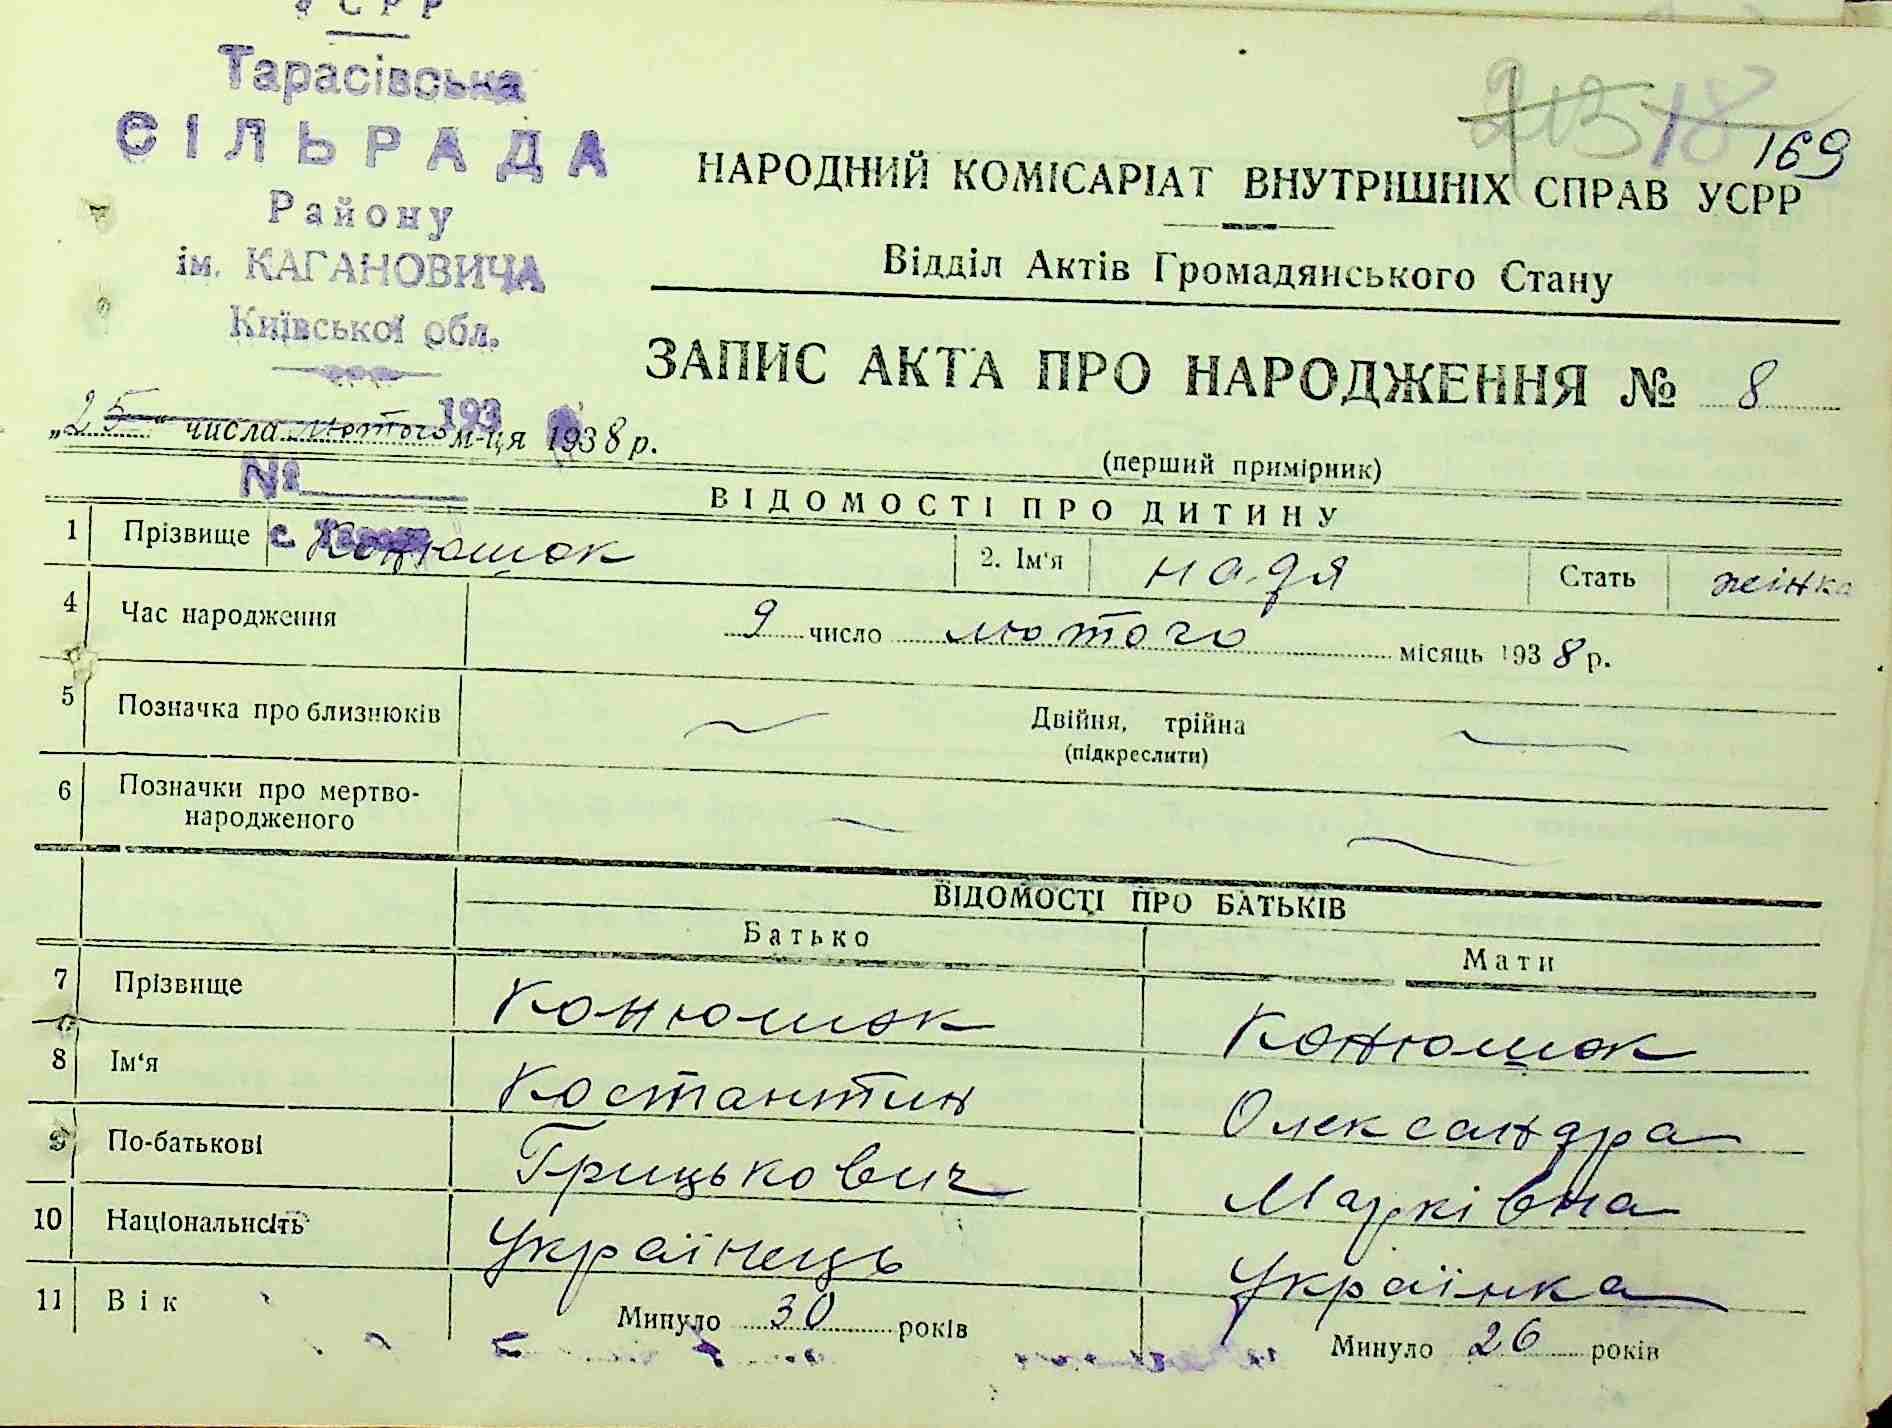 УСРР
Тарасівська
СІЛЬРАДА
Району
ім. КАГАНОВИЧА
Київської обл.
18 169
НАРОДНИЙ КОМІСАРІАТ ВНУТРІШНІХ СПРАВ УСРР
Відділ Актів Громадянського Стану
ЗАПИС АКТА ПРО НАРОДЖЕННЯ № 8
193
„25“ числа лютого м-ця 1938 р.
(перший примірник)
№
ВІДОМОСТІ ПРО ДИТИНУ
1 Прізвище с. Конюшок 2. Ім‘я Надя Стать жінка
4 Час народження 9 число лютого місяць 1938 р.
5 Позначка про близнюків Двійня, трійна
(підкреслити)
6 Позначки про мертво-
народженого
ВІДОМОСТІ ПРО БАТЬКІВ
Батько Мати
7 Прізвище Конюшок Конюшок
8 Ім‘я Костантин Олександра
9 По-батькові Грицькович Марківна
10 Національність Українець Українка
11 Вік Минуло 30 років Минуло 26 років